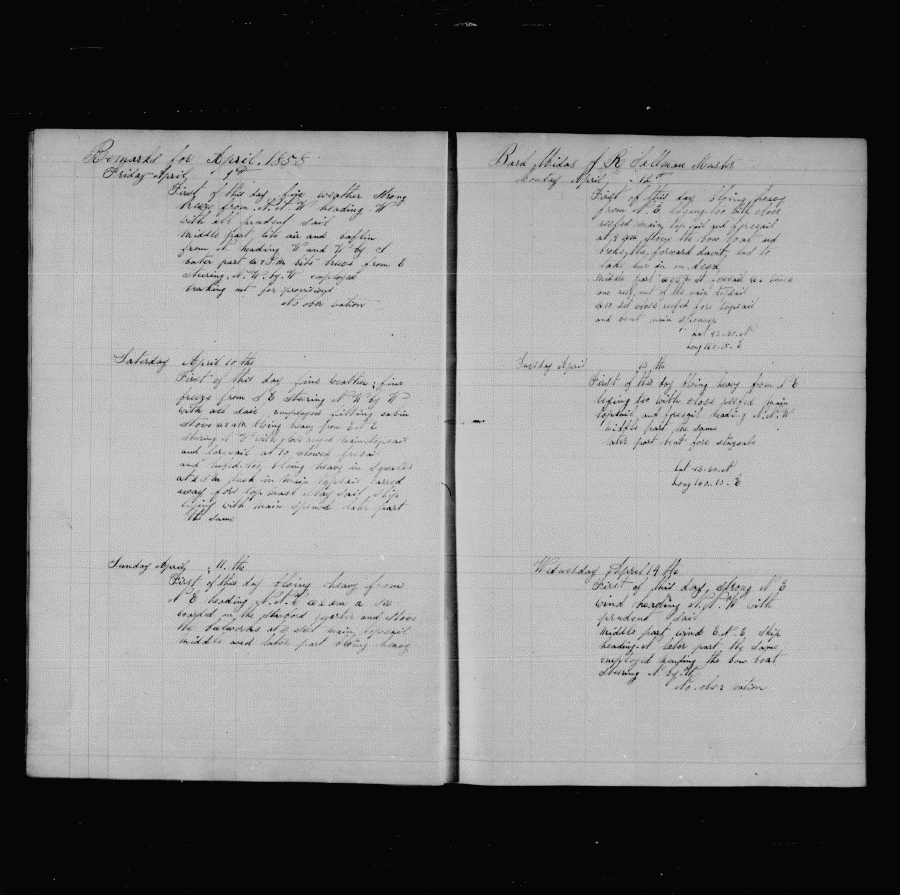 Remarks for April 1858
Friday April 9th
First of this day fine weather strong
breeze from N.N.W heading W
with all prudent sail
Middle part lite air and
from N heading W and W by S
later part at 7 AM lite breeze from E
Steering N.W. by W employed
out for provisions
No obser vation
Saterday April 10 the
First of this day fine weather, fine
breeze from S E Steering N W by W
with all sail employed fitting cabin
Stove at AM bloing heavy from E N E
Stering N W with close reefed main topsail
and foresail at 10, foresail
and bloing heavy in Squalls
at 2 PM took in main topsail
away fore top mast Stay sail Ship
lying with main later part
the same
Sunday April 11. the
First of this day bloing heavy from
N E heading at a sea
boarded in the quarter and Stove
the bulworks at 2 Set main topsail
middle and later part bloing heavy
Bark Midas of R Tallman Master
Monday April 12th
First of this day bloing heavy
from N. E. with close
reefed main top sail and foresail
at AM Stove the bow boat and
broke the forward davit, had to
take her in on deck
Middle part set foresail
one reef out of the main topsail
at 10 set close reefed fore topsail
and main
Lat 43-20-N
Long E
Tuesday April 13 the
First of this day bloing heavy from N E
lying too with close reefed main
topsail and foresail heading N.N.W
middle part the same
later part fore staysale
Lat 43-20-N
Long E
Wednesday April 14 the
First of this day, strong N. E
wind heading N.N.W with
prudent sail
Middle part wind E.N.E. Ship
heading N later part, the same
employed the bow boat
Steering N by W
No obser vation